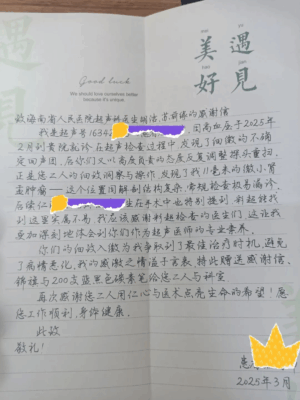 遇見
美好
Good luck
We should love ourselves better
because it's unique.
致海南省人民医院超声科医生
的感谢信
我是超声号
因高血压于2025年
2月到贵院就诊,在超声检查过程中,发现了细微的不确
定回声团,后你们又以高度负责的态度反复调整探头重扫,
正是您二人的细致洞察与操作,发现了我11毫米的微小肾
脏肿瘤——这个位置因解剖结构复杂,常规检查极易漏诊,
后续
生在手术中也特别提到,能超找
到这里实属不易,我应该感谢利超检查的医生们,这让我
更加深刻地体会到你们作为超声医师的专业素养。
你们的细致入微为我争取到了最佳治疗时机,避免
了病情恶化,我的感激之情溢于言表,特此赠送感谢信、
锦旗与200支蓝黑色碳素笔给您二人与科室
再次感谢您二人用仁心与医术点亮生命的希望!愿
您工作顺利,身体健康。
此致
敬礼!
患
2025年3月